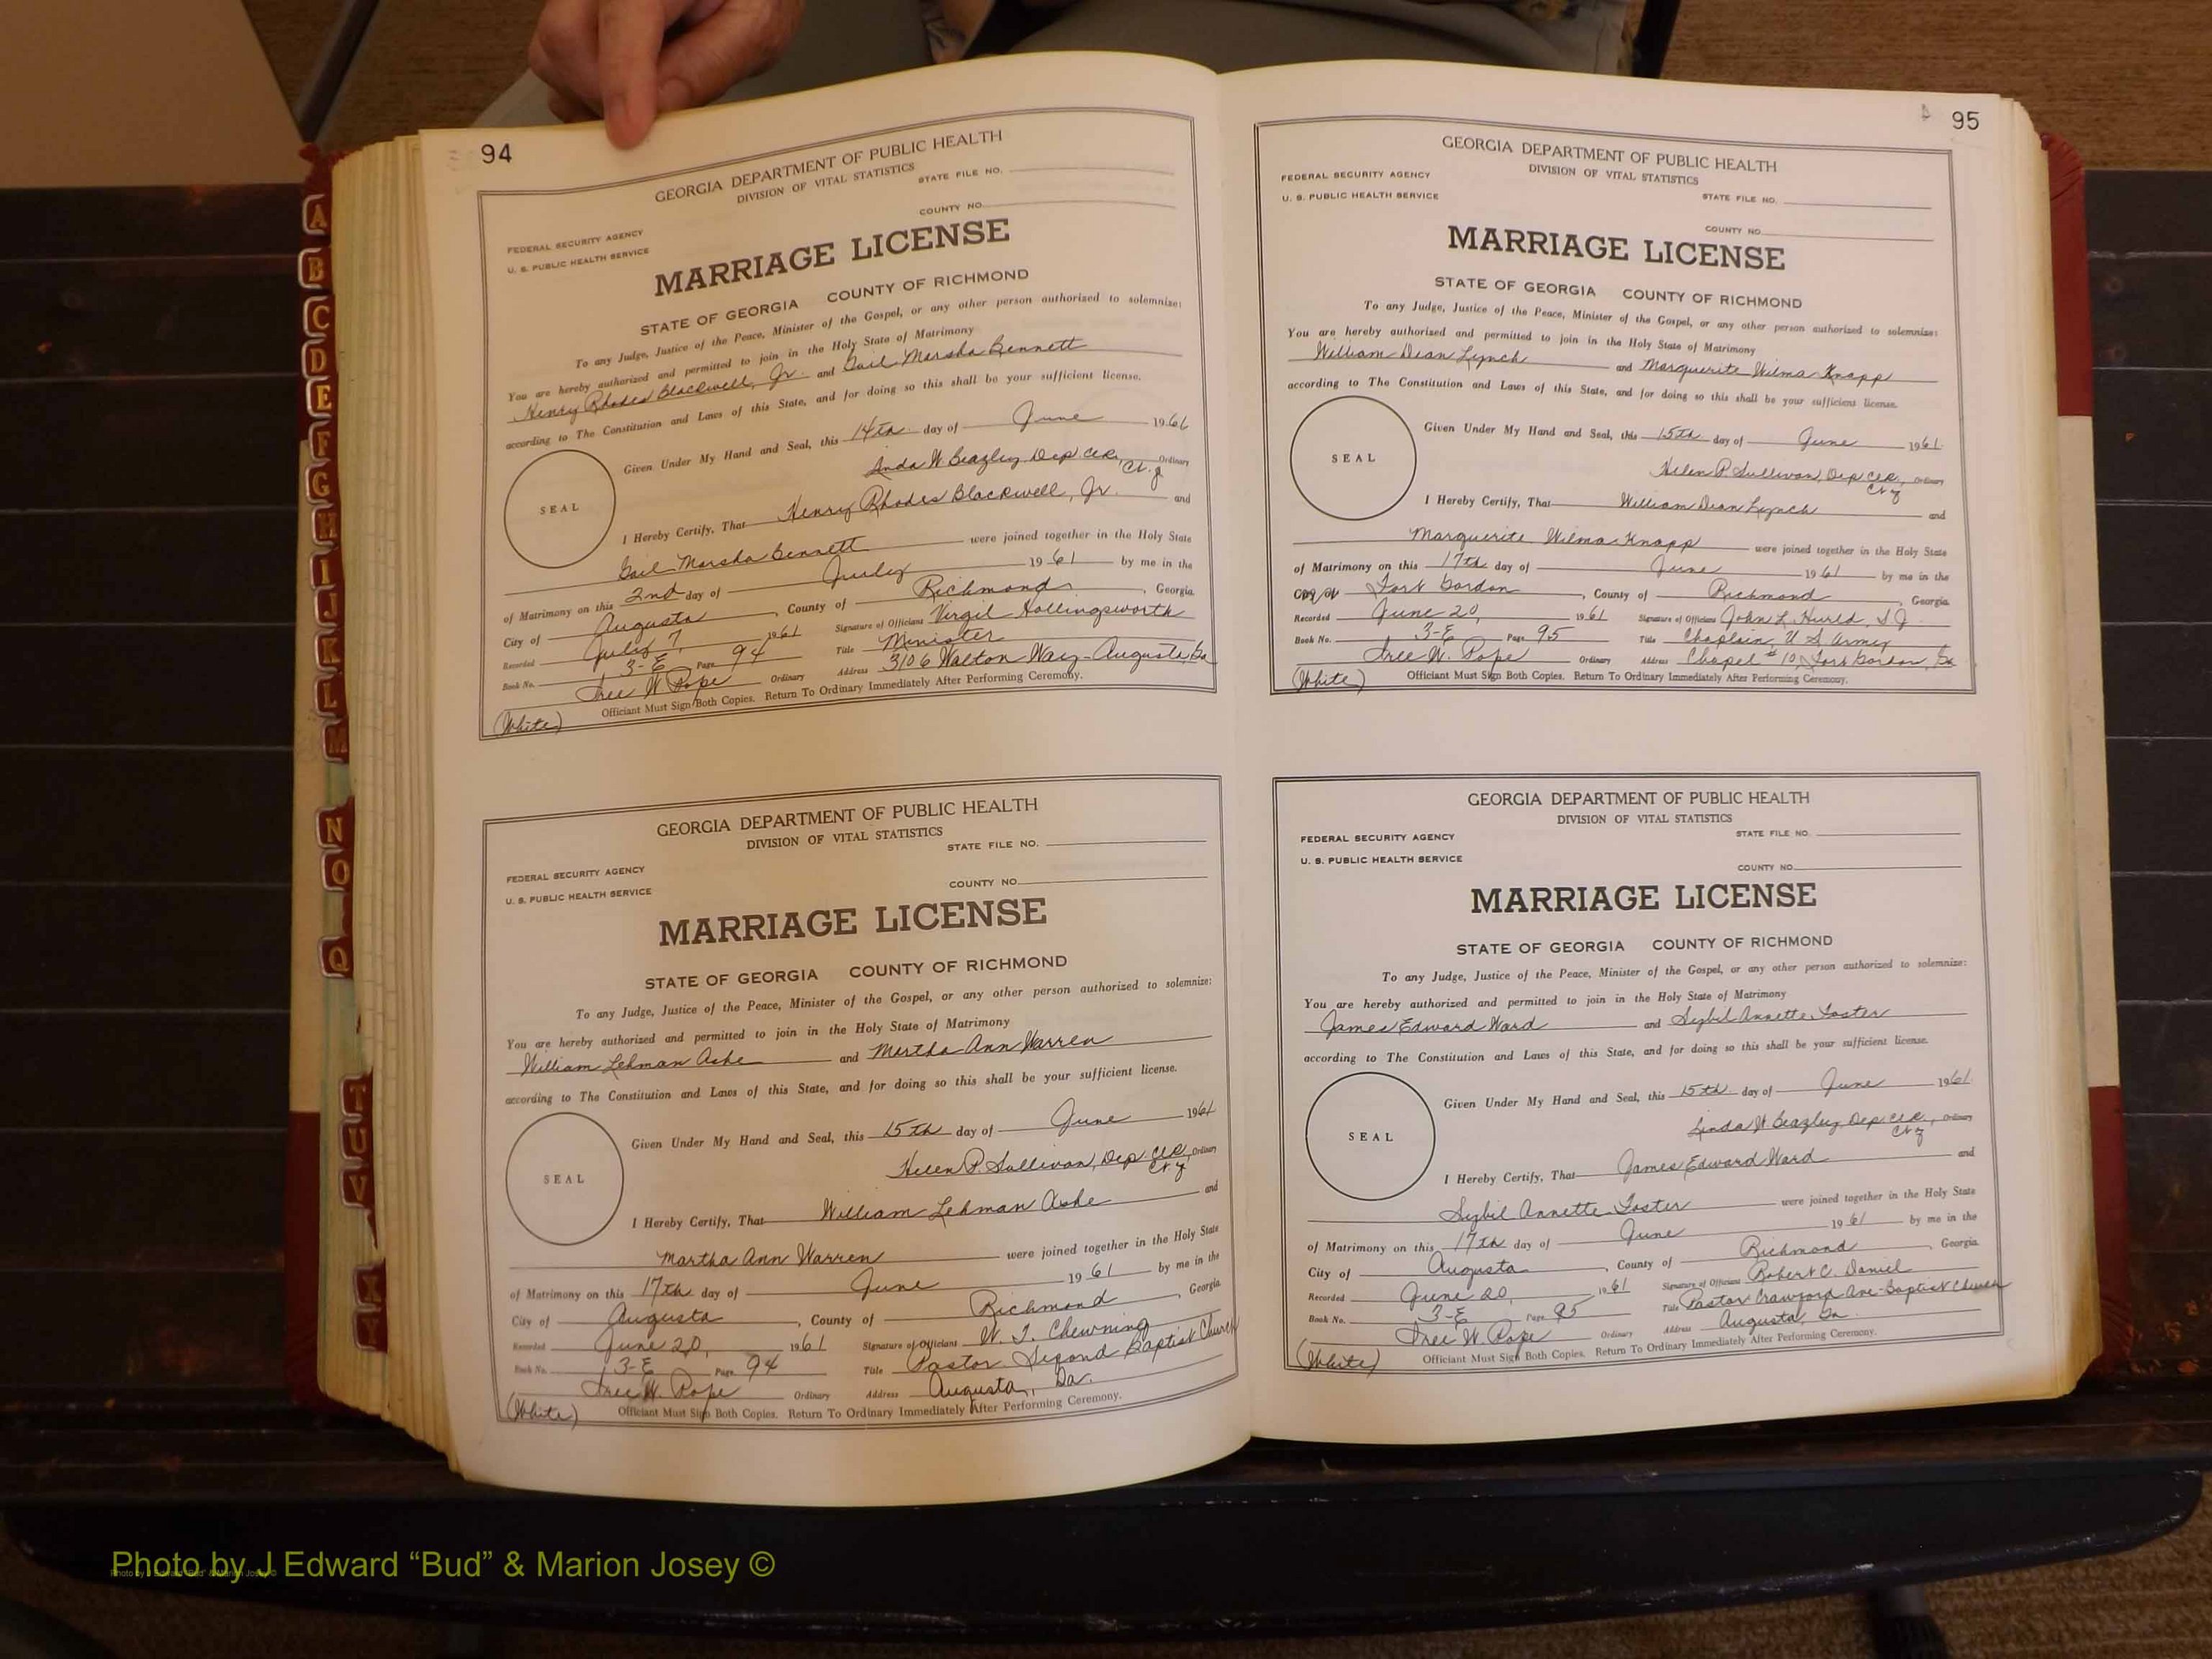 94
GEORGIA DEPARTMENT OF PUBLIC HEALTH
DIVISION OF VITAL STATISTICS
STATE FILE NO.
COUNTY NO.
FEDERAL SECURITY AGENCY
U. S. PUBLIC HEALTH SERVICE
MARRIAGE LICENSE
STATE OF GEORGIA COUNTY OF RICHMOND
To any Judge, Justice of the Peace, Minister of the Gospel, or any other person authorized to solemnize:
You are hereby authorized and permitted to join in the Holy State of Matrimony
Henry Rhodes Blackwell, Jr. and Gail Marsha Bennett
according to The Constitution and Laws of this State, and for doing so this shall be your sufficient license.
Given Under My Hand and Seal, this 14th day of June 1961
Linda W Beazley Dep Clk, Ordinary
Ct. of
SEAL
I Hereby Certify, That Henry Rhodes Blackwell, Jr. and
Gail Marsha Bennett were joined together in the Holy State
of Matrimony on this 2nd day of July 1961 by me in the
City of Augusta, County of Richmond, Georgia.
Recorded July 7 1961 Signature of Officiant Virgil Hollingsworth
Book No. 3-E Page 94 Title Minister
Ordinary Address 3106 Walton Way-Augusta, Ga
Officiant Must Sign Both Copies. Return To Ordinary Immediately After Performing Ceremony.
(White)
GEORGIA DEPARTMENT OF PUBLIC HEALTH
DIVISION OF VITAL STATISTICS
STATE FILE NO.
COUNTY NO.
FEDERAL SECURITY AGENCY
U. S. PUBLIC HEALTH SERVICE
MARRIAGE LICENSE
STATE OF GEORGIA COUNTY OF RICHMOND
To any Judge, Justice of the Peace, Minister of the Gospel, or any other person authorized to solemnize:
You are hereby authorized and permitted to join in the Holy State of Matrimony
William Lehman Ashe and Martha Ann Warren
according to The Constitution and Laws of this State, and for doing so this shall be your sufficient license.
Given Under My Hand and Seal, this 15th day of June 1961
Helen P. Sullivan, Dep Clk, Ordinary
SEAL
I Hereby Certify, That William Lehman Ashe and
Martha Ann Warren were joined together in the Holy State
of Matrimony on this 17th day of June 1961 by me in the
City of Augusta, County of Richmond, Georgia.
Recorded June 20, 1961 Signature of Officiant W. J. Chewning
Book No. 3-E Page 94 Title Pastor Second Baptist Church
Ordinary Address Augusta, Ga.
Officiant Must Sign Both Copies. Return To Ordinary Immediately After Performing Ceremony.
(White)
95
GEORGIA DEPARTMENT OF PUBLIC HEALTH
DIVISION OF VITAL STATISTICS
FEDERAL SECURITY AGENCY
U. S. PUBLIC HEALTH SERVICE
STATE FILE NO.
COUNTY NO.
MARRIAGE LICENSE
STATE OF GEORGIA COUNTY OF RICHMOND
To any Judge, Justice of the Peace, Minister of the Gospel, or any other person authorized to solemnize:
You are hereby authorized and permitted to join in the Holy State of Matrimony
William Dean Lynch and Marguerite Wilma Knapp
according to The Constitution and Laws of this State, and for doing so this shall be your sufficient license.
Given Under My Hand and Seal, this 15th day of June 1961
Helen P. Sullivan, Dep Clk, Ordinary
SEAL
I Hereby Certify, That William Dean Lynch and
Marguerite Wilma Knapp were joined together in the Holy State
of Matrimony on this 17th day of June 1961 by me in the
Fort Gordon, County of Richmond, Georgia.
Recorded June 20, 1961 Signature of Officiant John L. SJ
Book No. 3-E Page 95 Title Chaplain, U S Army
Ordinary Address Chapel #10, Fort Gordon, Ga
Officiant Must Sign Both Copies. Return To Ordinary Immediately After Performing Ceremony.
(White)
GEORGIA DEPARTMENT OF PUBLIC HEALTH
DIVISION OF VITAL STATISTICS
STATE FILE NO.
FEDERAL SECURITY AGENCY
U. S. PUBLIC HEALTH SERVICE
COUNTY NO.
MARRIAGE LICENSE
STATE OF GEORGIA COUNTY OF RICHMOND
To any Judge, Justice of the Peace, Minister of the Gospel, or any other person authorized to solemnize:
You are hereby authorized and permitted to join in the Holy State of Matrimony
James Edward Ward and Sybil Annette Foster
according to The Constitution and Laws of this State, and for doing so this shall be your sufficient license.
Given Under My Hand and Seal, this 15th day of June 1961
Linda W Beazley, Dep Clk, Ordinary
SEAL
I Hereby Certify, That James Edward Ward and
Sybil Annette Foster were joined together in the Holy State
of Matrimony on this 17th day of June 1961 by me in the
City of Augusta, County of Richmond, Georgia.
Recorded June 20, 1961 Signature of Officiant Robert C. Daniel
Book No. 3-E Page 95 Title Pastor Crawford Ave-Baptist Church
Ordinary Address Augusta, Ga.
Officiant Must Sign Both Copies. Return To Ordinary Immediately After Performing Ceremony.
(White)
A
B
C
D
E
F
G
H
I
J
K
L
M
N
O
Q
T
U
V
X
Y
Photo by J Edward “Bud” & Marion Josey ©
Photo by J Edward “Bud” & Marion Josey ©